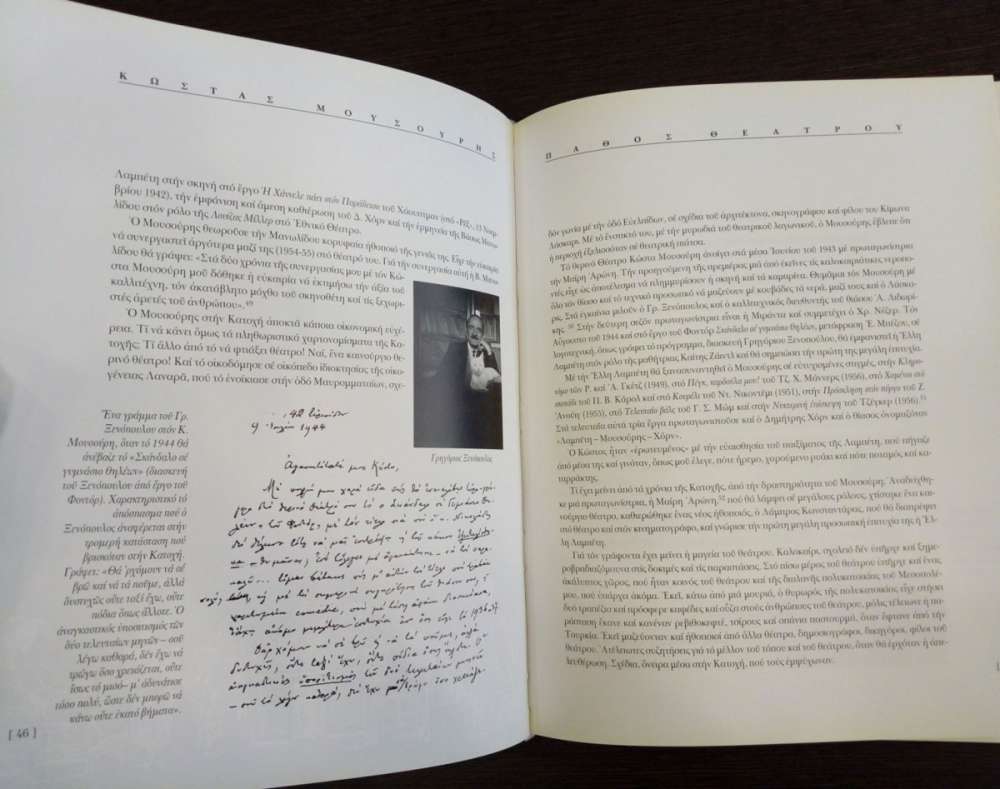 ΚΩΣΤΑΣ ΜΟΥΣΟΥΡΗΣ
Λαμπέτη στήν σκηνή στό ἔργο Ἡ Χάννελε πάει στόν Παράδεισο τοῦ Χάουπτμαν (στό «Ρέξ», 15 Νοεμ-
βρίου 1942), τήν ἐμφάνιση καί ἄμεση καθιέρωση τοῦ Δ. Χόρν καί τήν ἑρμηνεία τῆς Βάσως Μανω-
λίδου στόν ρόλο τῆς Λουΐζας Μίλλερ στό Ἐθνικό Θέατρο.
Ὁ Μουσούρης θεωροῦσε τήν Μανωλίδου κορυφαία ἠθοποιό τῆς γενιᾶς της. Εἶχε τήν εὐκαιρία
νά συνεργαστεῖ ἀργότερα μαζί της (1954-55) στό θέατρό του. Γιά τήν συνεργασία αὐτή ἡ Β. Μανω-
λίδου θά γράψει: «Στά δύο χρόνια τῆς συνεργασίας μου μέ τόν Κώ-
στα Μουσούρη μοῦ δόθηκε ἡ εὐκαιρία νά ἐκτιμήσω τήν ἀξία τοῦ
καλλιτέχνη, τόν ἀκατάβλητο μόχθο τοῦ σκηνοθέτη καί τίς ξεχωρι-
στές ἀρετές τοῦ ἀνθρώπου».
Ὁ Μουσούρης στήν Κατοχή ἀποκτᾶ κάποια οἰκονομική εὐχέ-
ρεια. Τί νά κάνει ὅμως τά πληθωριστικά χαρτονομίσματα τῆς Κα-
τοχῆς; Τί ἄλλο ἀπό τό νά φτιάξει θέατρο! Ναί, ἕνα καινούργιο θε-
ρινό θέατρο! Καί τό οἰκοδόμησε σέ οἰκόπεδο ἰδιοκτησίας τῆς οἰκο-
γένειας Λαναρᾶ, πού τό ἐνοίκιασε στήν ὁδό Μαυρομματαίων, σχε-
Γρηγόριος Ξενόπουλος
Ἕνα γράμμα τοῦ Γρ.
Ξενόπουλου στόν Κ.
Μουσούρη, ὅταν τό 1944 θά
ἀνέβαζε τό «Σκάνδαλο σέ
γυμνάσιο θηλέων» (διασκευή
τοῦ Ξενόπουλου ἀπό ἔργο τοῦ
Φοντόρ). Χαρακτηριστικό τό
ἀπόσπασμα πού ὁ
Ξενόπουλος ἀναφέρεται στήν
τρομερή κατάσταση πού
βρισκόταν στήν Κατοχή.
Γράφει: «Θά 'ρχόμουν νά σέ
βρῶ καί νά τά ποῦμε, ἀλλά
δυστυχῶς οὔτε ταξί ἔχω, οὔτε
πόδια ὅπως ἄλλοτε. Ὁ
ἀναγκαστικός ὑποσιτισμός τῶν
δύο τελευταίων μηνῶν – σοῦ
λέγω καθαρά, δέν ἔχω νά
τρώγω ὅσο χρειάζεται, οὔτε
ἴσως τό μισό– μ' ἀδυνάτισε
τόσο πολύ, ὥστε δέν μπορῶ νά
κάνω οὔτε ἑκατό βήματα».
9 Ἰουλίου 1944
Ἀγαπητέ μου Κώστα,
[ 46 ]
ΠΑΘΟΣ ΘΕΑΤΡΟΥ
δόν γωνία μέ τήν ὁδό Εὐελπίδων, σέ σχέδια τοῦ ἀρχιτέκτονα, σκηνογράφου καί φίλου του Κίμωνα
Λάσκαρι. Μέ τό ἔνστικτό του, μέ τήν μυρωδιά τοῦ θεατρικοῦ λαγωνικοῦ, ὁ Μουσούρης ἔβλεπε ὅτι
ἡ περιοχή ἐξελισσόταν σέ θεατρική πιάτσα.
Τό θερινό Θέατρο Κώστα Μουσούρη ἀνοίγει στά μέσα Ἰουνίου τοῦ 1943 μέ πρωταγωνίστρια
τήν Μαίρη Ἀρώνη. Τήν προηγούμενη τῆς πρεμιέρας μιά ἀπό ἐκεῖνες τίς καλοκαιριάτικες νεροπο-
ντές εἶχε ὡς ἀποτέλεσμα νά πλημμυρίσουν ἡ σκηνή καί τά καμαρίνια. Θυμᾶμαι τόν Μουσούρη μέ
ὅλο τόν θίασο καί τό τεχνικό προσωπικό νά μαζεύουν μέ κουβάδες τά νερά, μαζί τους καί ὁ Λάσκα-
ρις. Στά ἐγκαίνια μιλοῦν ὁ Γρ. Ξενόπουλος καί ὁ καλλιτεχνικός διευθυντής τοῦ θιάσου Ἀ. Λιδωρί-
κης. Στήν δεύτερη σεζόν πρωταγωνίστρια εἶναι ἡ Μιράντα καί συμμετέχει ὁ Χρ. Νέζερ. Τόν
Αὔγουστο τοῦ 1944 καί στό ἔργο τοῦ Φοντόρ Σκάνδαλο σέ γυμνάσιο θηλέων, μετάφραση Ἑ. Μπέζου, σέ
λογοτεχνική, ὅπως γράφει τό πρόγραμμα, διασκευή Γρηγορίου Ξενοπούλου, θά ἐμφανιστεῖ ἡ Ἔλλη
Λαμπέτη στόν ρόλο τῆς μαθήτριας Καίτης Ζάντλ καί θά σημειώσει τήν πρώτη της μεγάλη ἐπιτυχία.
Μέ τήν Ἔλλη Λαμπέτη θά ξανασυναντηθεῖ ὁ Μουσούρης σέ εὐτυχισμένες στιγμές, στήν Κληρο-
νόμο τῶν Ρ. καί Ἀ. Γκέτζ (1949), στό Πέγκ, καρδούλα μου! τοῦ Τζ. Χ. Μάννερς (1956), στό Χαμένα στά
σκοτάδια τοῦ Π. Β. Κάρολ καί στό Κουρέλι τοῦ Ντ. Νικοντέμι (1951), στήν Πρόσκληση στόν πύργο τοῦ Ζ.
Ἀνούιγ (1955), στό Τελευταῖο βάλς τοῦ Γ. Σ. Μώμ καί στήν Νυχτερινή ἐπίσκεψη τοῦ Τζούρκερ (1956).
Στά τελευταῖα αὐτά τρία ἔργα πρωταγωνιστοῦσε καί ὁ Δημήτρης Χόρν καί ὁ θίασος ὀνομαζόταν
«Λαμπέτη – Μουσούρης – Χόρν».
Ὁ Κώστας ἦταν «ἐρωτευμένος» μέ τήν εὐαισθησία τοῦ παιξίματος τῆς Λαμπέτη, πού πήγαζε
ἀπό μέσα της καί γινόταν, ὅπως μοῦ ἔλεγε, πότε ἤρεμο, χαρούμενο ρυάκι καί πότε ποταμός καί κα-
ταρράκτης.
Τί ἔχει μείνει ἀπό τά χρόνια τῆς Κατοχῆς, ἀπό τήν δραστηριότητα τοῦ Μουσούρη. Ἀναδείχθη-
κε μιά πρωταγωνίστρια, ἡ Μαίρη Ἀρώνη, πού θά λάμψει σέ μεγάλους ρόλους, χτίστηκε ἕνα και-
νούργιο θέατρο, καθιερώθηκε ἕνας νέος ἠθοποιός, ὁ Λάμπρος Κωνσταντάρας, πού θά διαπρέψει
στό θέατρο καί στόν κινηματογράφο, καί γνώρισε τήν πρώτη μεγάλη προσωπική ἐπιτυχία της ἡ Ἔλ-
λη Λαμπέτη.
Γιά τόν γράφοντα ἔχει μείνει ἡ μαγεία τοῦ θεάτρου. Καλοκαίρι, σχολεῖο δέν ὑπῆρχε καί ξημε-
ροβραδιαζόμουνα στίς δοκιμές καί τίς παραστάσεις. Στό πίσω μέρος τοῦ θεάτρου ὑπῆρχε καί ἕνας
ἀκάλυπτος χῶρος, πού ἦταν κοινός τοῦ θεάτρου καί τῆς διπλανῆς πολυκατοικίας τοῦ Μεσοπολέ-
μου, πού ὑπάρχει ἀκόμα. Ἐκεῖ, κάτω ἀπό μιά μουριά, ὁ θυρωρός τῆς πολυκατοικίας εἶχε στήσει
δυό τραπέζια καί πρόσφερε καφέδες καί οὖζα στούς ἀνθρώπους τοῦ θεάτρου, μόλις τέλειωνε ἡ πα-
ράσταση ἔκανε καί κανέναν ρεβιθοκεφτέ, τσίρους καί σπάνια παστουρμά, ὅταν ἔφτανε ἀπό τήν
Τουρκία. Ἐκεῖ μαζεύονταν καί ἠθοποιοί ἀπό ἄλλα θέατρα, δημοσιογράφοι, δικηγόροι, φίλοι τοῦ
θεάτρου. Ἀτέλειωτες συζητήσεις γιά τό μέλλον τοῦ τόπου καί τοῦ θεάτρου, ὅταν θά ἐρχόταν ἡ ἀπε-
λευθέρωση. Σχέδια, ὄνειρα μέσα στήν Κατοχή, πού τούς ἐμψύχωναν.